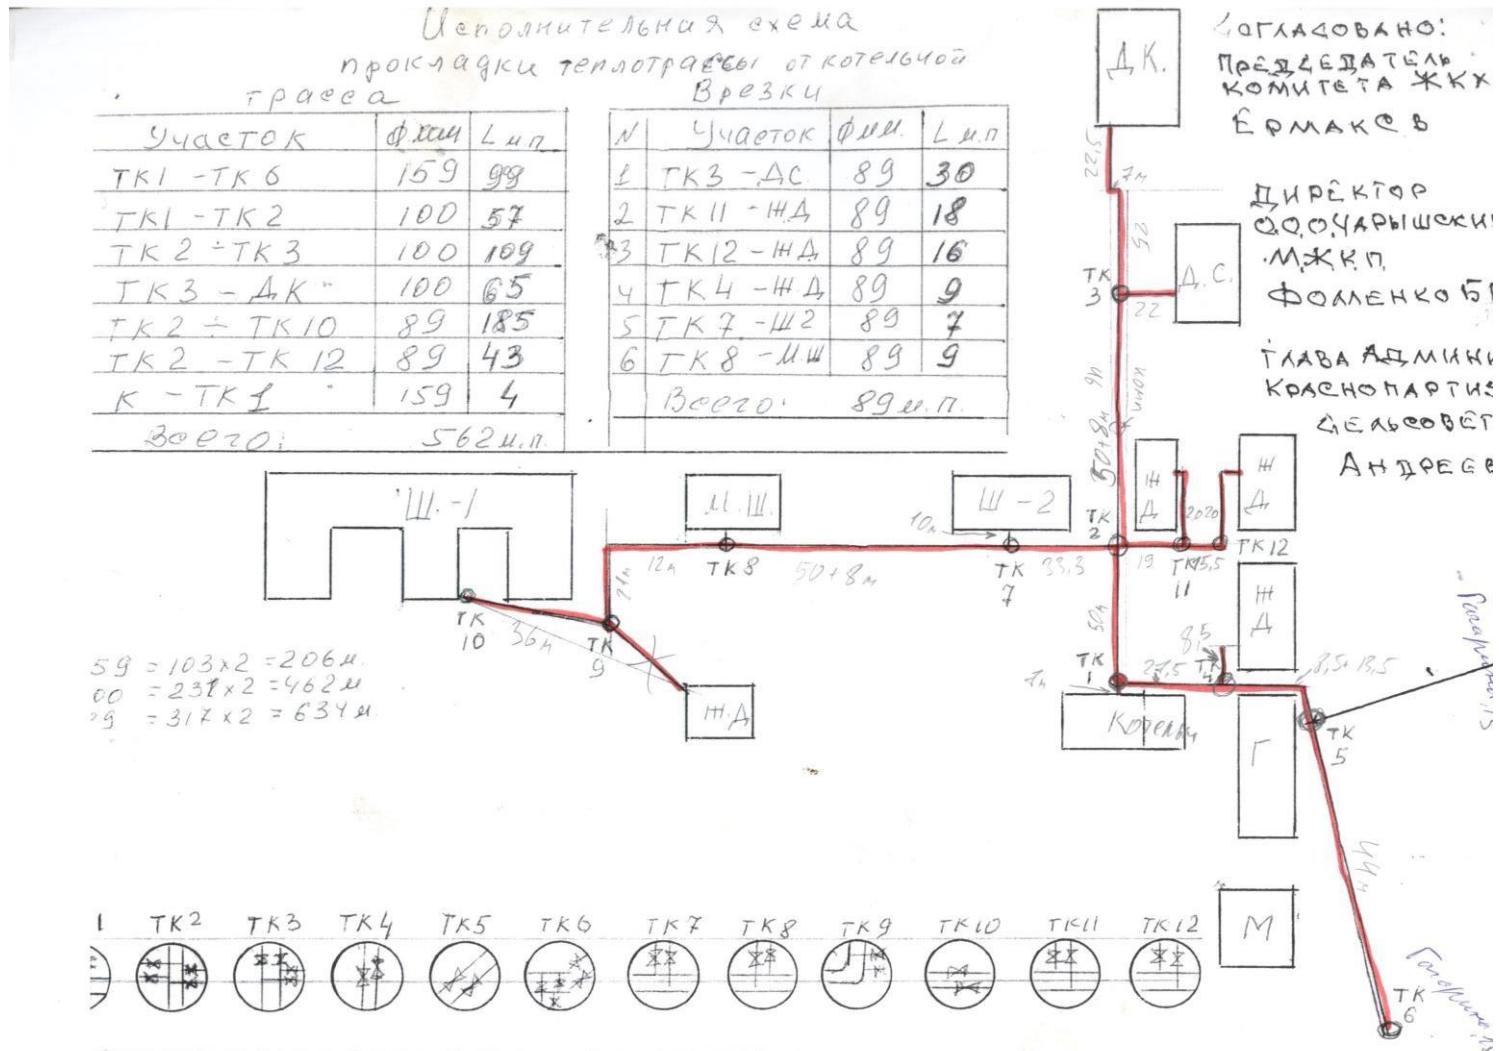 Исполнительная схема
прокладки теплотрассы от котельной
трасса
Участок Ф мм L м.п
ТК1 - ТК6 159 99
ТК1 - ТК2 100 57
ТК2 ÷ ТК3 100 109
ТК3 - ДК 100 65
ТК2 ÷ ТК10 89 185
ТК2 - ТК12 89 43
К - ТК1 159 4
Всего: 562 м.п.
Врезки
N Участок Ф мм. L м.п
1 ТК3 - ДС. 89 30
2 ТК11 - ЖД 89 18
3 ТК12 - ЖД 89 16
4 ТК4 - ЖД 89 9
5 ТК7 - Ш2 89 7
6 ТК8 - МШ 89 9
Всего: 89 м.п.
СОГЛАСОВАНО:
ПРЕДСЕДАТЕЛЬ
КОМИТЕТА ЖКХ
ЕРМАКОВ
ДИРЕКТОР
ООО,ЧАРЫШСКИ
МЖКП
ФОМЕНКО
ГЛАВА АДМИНИ
КРАСНОПАРТИЗ
СЕЛЬСОВЕТ
АНДРЕЕВ
Д.К.
22,5
7м
25
ТК
3
Д.С.
22
50+8м
46
Ш.-1
М.Ш.
Ш-2
10м
ТК
2
Ж
Д
2020
Ж
Д.
12м
ТК8
50+8м
ТК
7
33,3
19
ТК
11
15,5
ТК12
21м
ТК
10
36м
ТК
9
50м
Ж
Д
8,5
ТК
1
1м
27,5
ТК
4
8,5+13,5
Ж.Д
Котельн
Г
ТК
5
Гагарина,15
59 = 103x2 = 206м.
00 = 231x2 = 462м
9 = 317x2 = 634м.
44м
М
ТК
6
1 ТК2 ТК3 ТК4 ТК5 ТК6 ТК7 ТК8 ТК9 ТК10 ТК11 ТК12